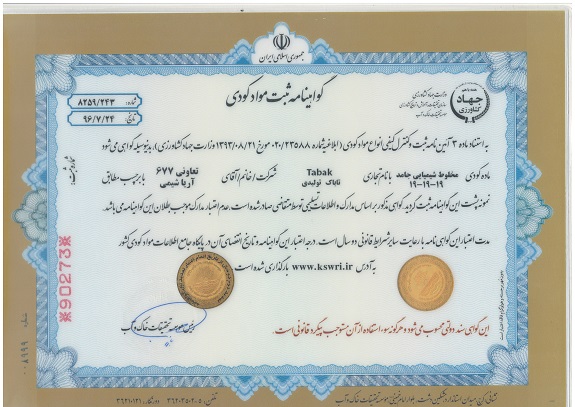 جمهوری اسلامی ایران
گواهینامه ثبت مواد کودی
شماره: ۸۲۵۹/۲۴۳
تاریخ: ۹۶/۷/۲۴
وزارت جهاد کشاورزی
جهاد
کشاورزی
به استناد ماده ۳ آئین نامه ثبت و کنترل کیفی انواع مواد کودی (ابلاغیه شماره ۰۲۰/۲۳۵۸۸ مورخ ۱۳۹۳/۰۸/۲۱ وزارت جهاد کشاورزی) بدینوسیله گواهی می شود
ماده کودی مخلوط شیمیایی جامد ۱۹-۱۹-۱۹ با نام تجاری Tabak تاباک تولیدی شرکت / خانم / آقای تعاونی ۶۷۷ آریا شیمی با برچسب مطابق
نمونه پشت این گواهینامه ثبت گردید. گواهی مذکور بر اساس مدارک و اطلاعات تسلیمی توسط متقاضی صادر شده است. عدم اعتبار مدارک موجب بطلان این گواهینامه می باشد.
مدت اعتبار این گواهی نامه با رعایت سایر شرایط قانونی دو سال است. درجه اعتبار این گواهینامه و تاریخ انقضای آن در پایگاه جامع اطلاعات مواد کودی کشور
به آدرس www.kswri.ir بارگذاری شده است
رئیس موسسه تحقیقات خاک و آب
این گواهی سند دولتی محسوب می شود و هرگونه سوء استفاده از آن مستوجب پیگرد قانونی است.
شماره ثبت:
*90273*
شماره ۰۰۸۹۹۹